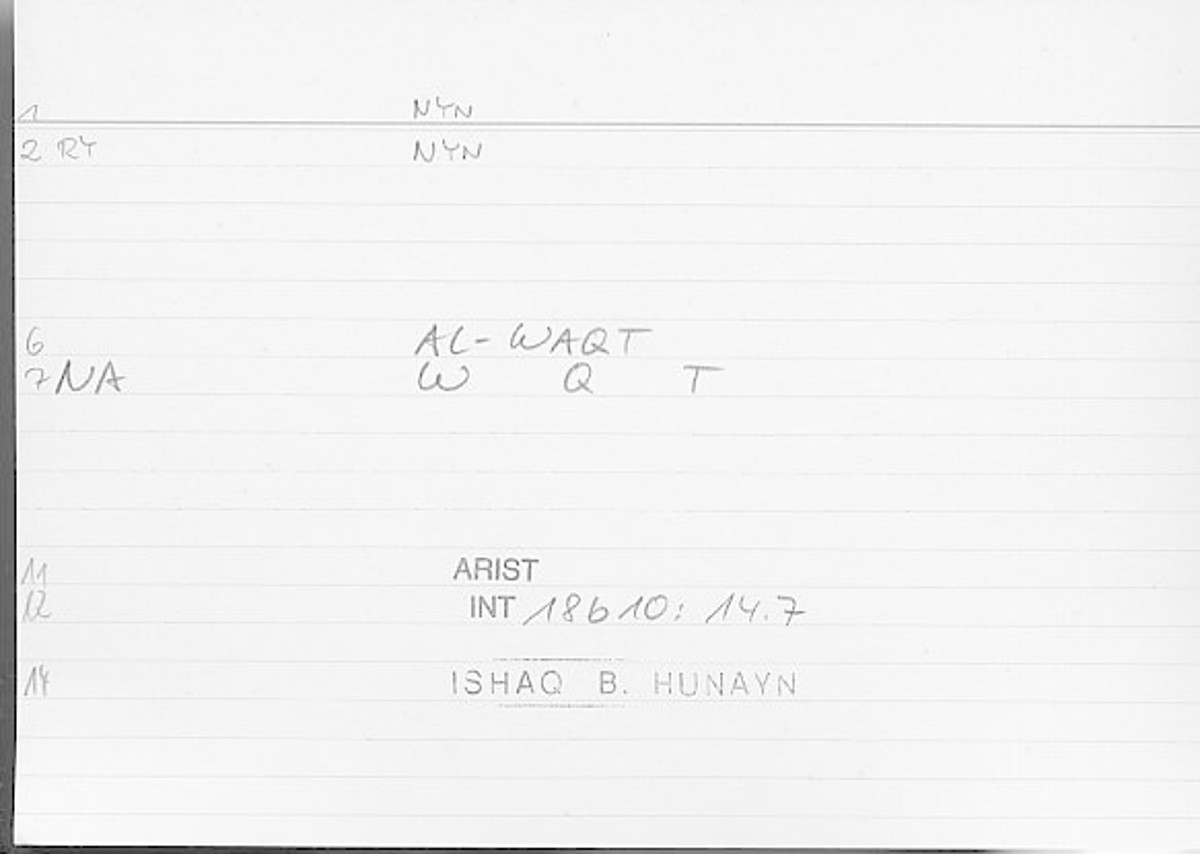 1 NYN
2 RY NYN
6 AL-WAQT
7 NA W Q T
11 ARIST
12 INT 18b10: 14.7
14 ISHAQ B. HUNAYN